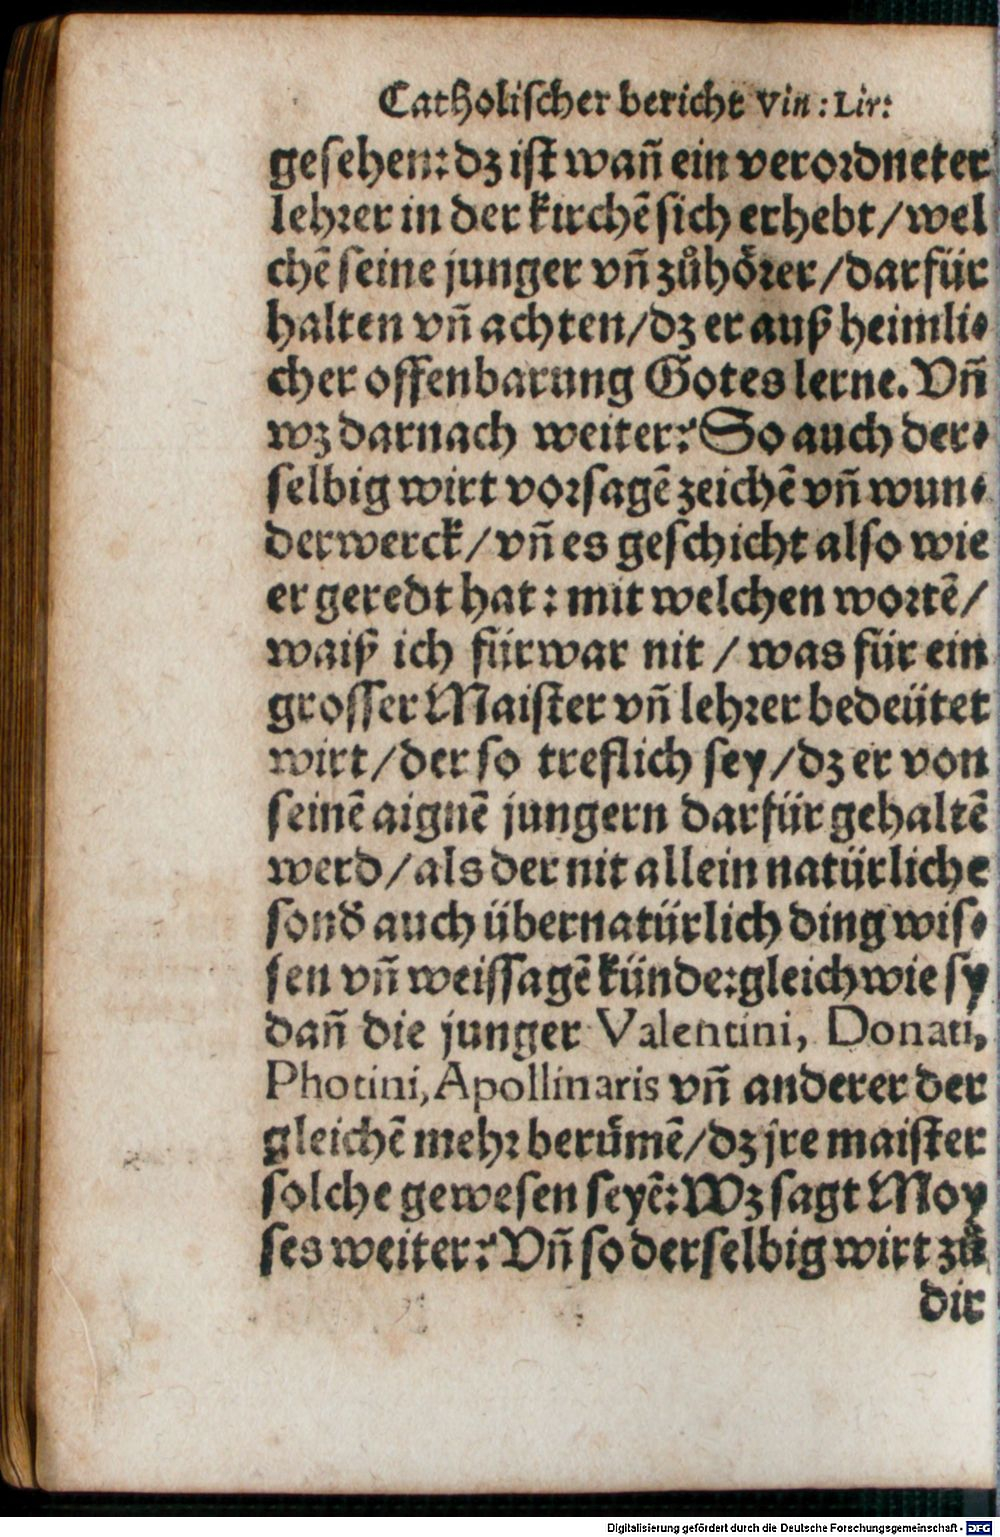 Catholischer bericht Vin: Lir:
gesehen: dz ist wañ ein verordneter
lehrer in der kirchẽ sich erhebt/ wel
chẽ seine junger vñ zůhörer/ darfür
halten vñ achten/ dz er auß heimli⸗
cher offenbarung Gotes lerne. Vñ
wz darnach weiter? So auch der⸗
selbig wirt vorsagẽ zeichẽ vñ wun⸗
derwerck/ vñ es geschicht also wie
er geredt hat: mit welchen wortẽ/
waiß ich fürwar nit/ was für ein
grosser Maister vñ lehrer bedeütet
wirt/ der so treflich sey/ dz er von
seinẽ aignẽ jungern darfür gehaltẽ
werd/ als der nit allein natürliche
sond̃ auch übernatürlich ding wis⸗
sen vñ weissagẽ künde: gleich wie sy
dañ die junger Valentini, Donati,
Photini, Apollinaris vñ anderer der
gleichẽ mehr berümẽ/ dz jre maister
solche gewesen seyẽ: Wz sagt Moy
ses weiter? Vñ so derselbig wirt zů
dir
Digitalisierung gefördert durch die Deutsche Forschungsgemeinschaft - DFG